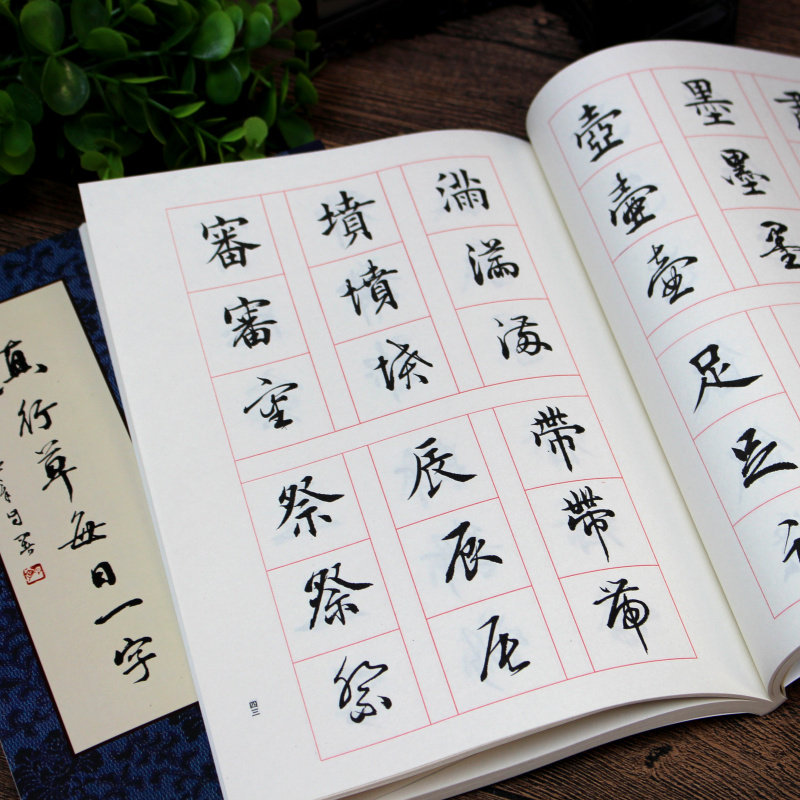 墨墨墨
壺壺壺
足足
滿滿滿
墳墳墳
審審審
帶帶帶
辰辰辰
祭祭祭
四三
真行草每日一字